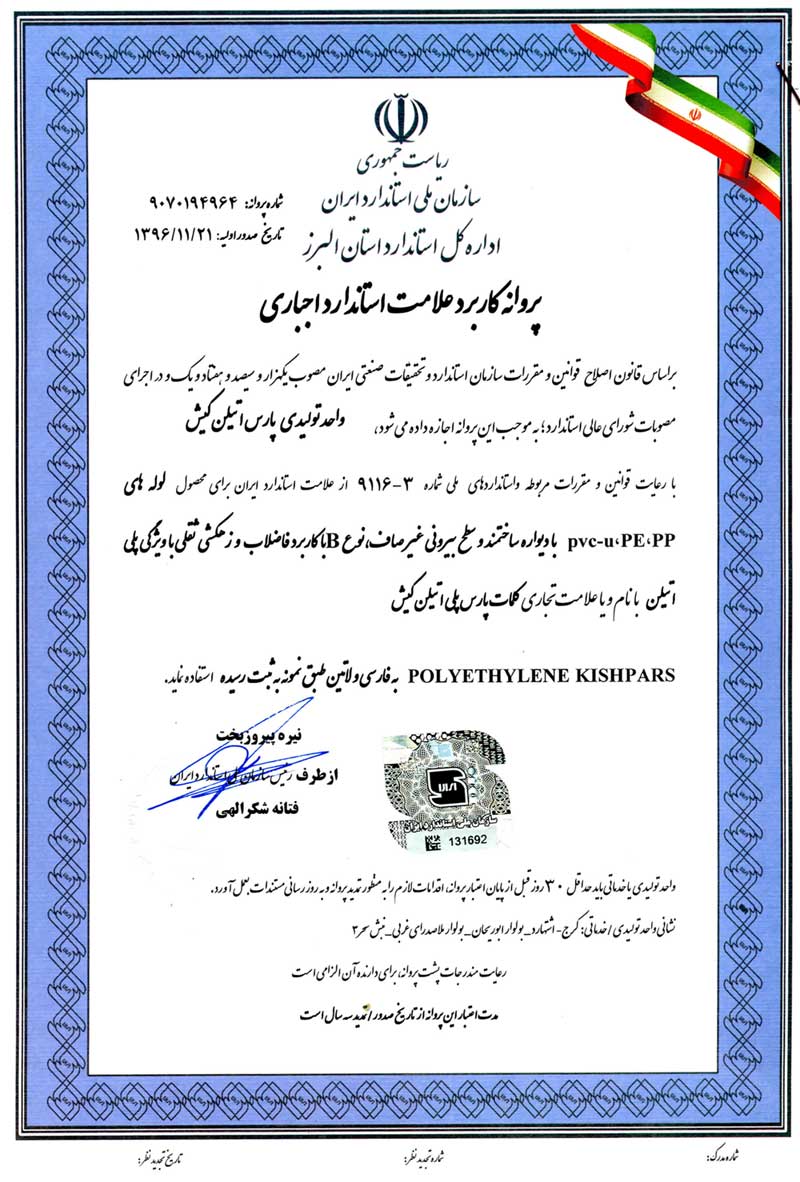 ریاست جمهوری
سازمان ملی استاندارد ایران
اداره کل استاندارد استان البرز
شماره پروانه: ۹۰۷۰۱۹۴۹۶۴
تاریخ صدور اولیه: ۱۳۹۶/۱۱/۲۱
پروانه کاربرد علامت استاندارد اجباری
براساس قانون اصلاح قوانین و مقررات سازمان استاندارد و تحقیقات صنعتی ایران مصوب یکهزار و سیصد و هفتاد و یک و در اجرای
مصوبات شورای عالی استاندارد؛ به موجب این پروانه اجازه داده می شود، واحد تولیدی پارس اتیلن کیش
با رعایت قوانین و مقررات مربوطه واستانداردهای ملی شماره ۳-۹۱۱۶ از علامت استاندارد ایران برای محصول لوله های
pvc-u،PE،PP با دیواره ساختمند و سطح بیرونی غیر صاف، نوع B با کاربرد فاضلاب و زهکشی ثقلی با ویژگی پلی
اتیلن با نام و یا علامت تجاری کلمات پارس پلی اتیلن کیش
POLYETHYLENE KISHPARS به فارسی و لاتین طبق نمونه به ثبت رسیده استفاده نماید.
نیره پیروزبخت
از طرف رئیس سازمان ملی استاندارد ایران
فتانه شکرالهی
سازمان ملی استاندارد ایران
131692
واحد تولیدی یا خدماتی باید حداقل ۳۰ روز قبل از پایان اعتبار پروانه، اقدامات لازم را به منظور تمدید پروانه و به روز رسانی مستندات بعمل آورد.
نشانی واحد تولیدی / خدماتی: کرج- اشتهارد_ بولوار ابوریحان_ بولوار ملاصدرای غربی_ نبش سحر۳
رعایت مندرجات پشت پروانه، برای دارنده آن الزامی است
مدت اعتبار این پروانه از تاریخ صدور / تمدید سه سال است
شماره مدرک:
شماره تجدید نظر:
تاریخ تجدید نظر: